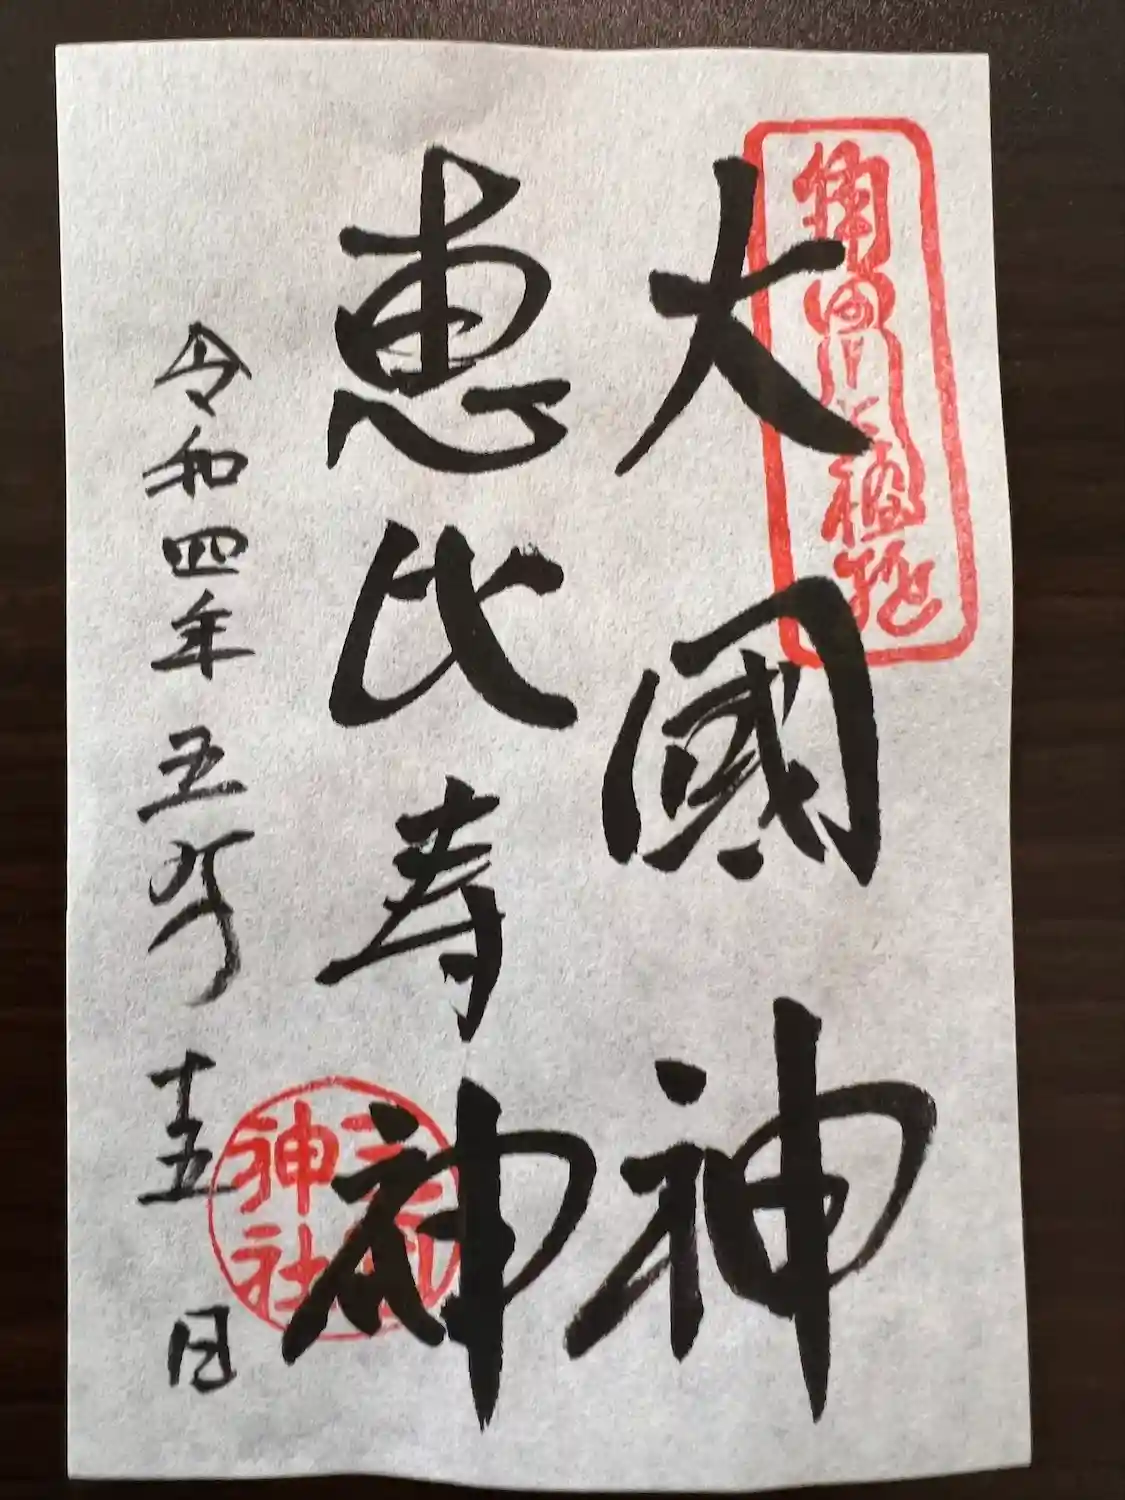 大國神
恵比寿神
令和四年五月十五日
三囲神社